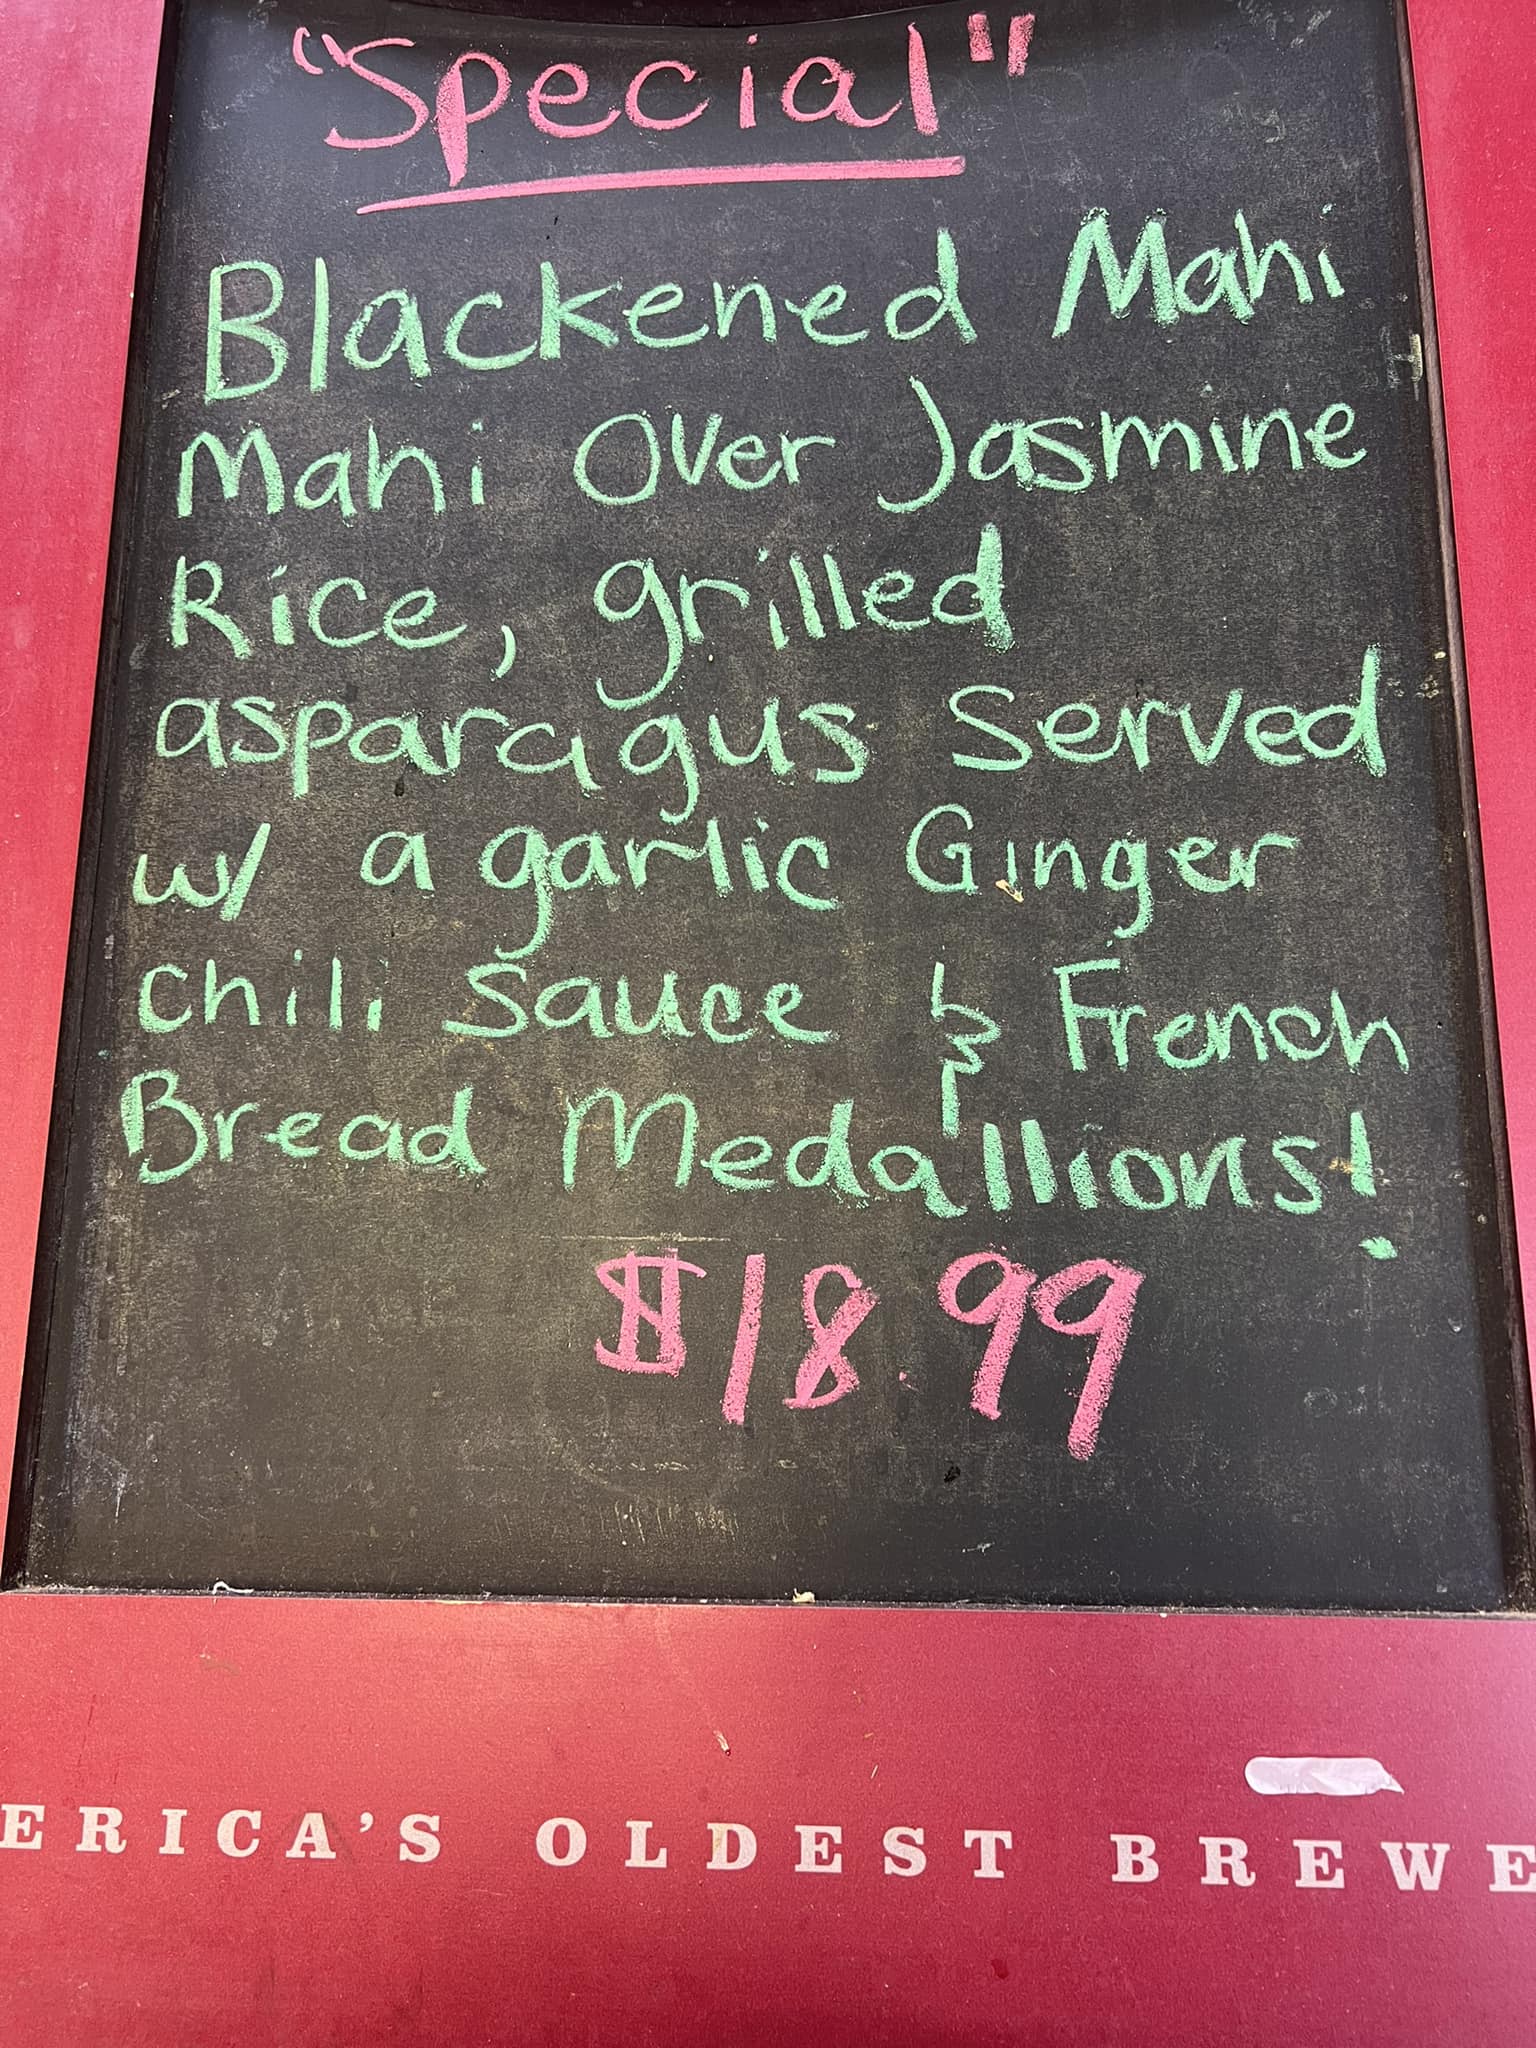 "Special"
Blackened Mahi
Mahi Over Jasmine
Rice, grilled
asparagus served
w/ a garlic Ginger
chili sauce & French
Bread Medallions!
$18.99
ERICA'S OLDEST BREWE